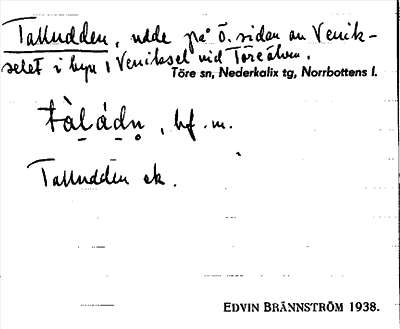 Talludden, udde på Ö. sidan av Venik-
selet i byn Veniksel vid Töreälven.
Töre sn, Nederkalix tg, Norrbottens l.
bf. m.
Talludden ek.
EDVIN BRÄNNSTRÖM 1938.